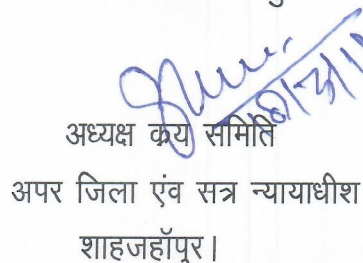 अध्यक्ष क्रय समिति
अपर जिला एंव सत्र न्यायाधीश
शाहजहॉपुर।